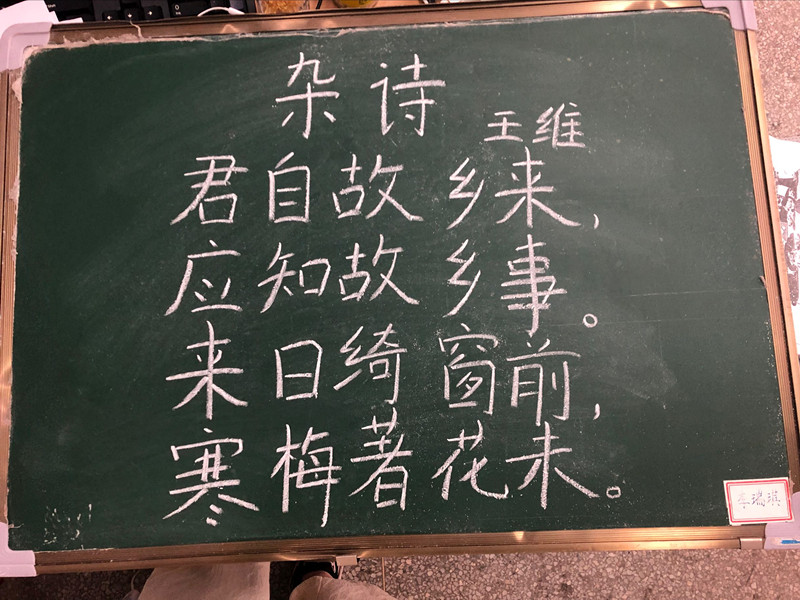 杂诗
王维
君自故乡来，
应知故乡事。
来日绮窗前，
寒梅著花未。
李瑞琪